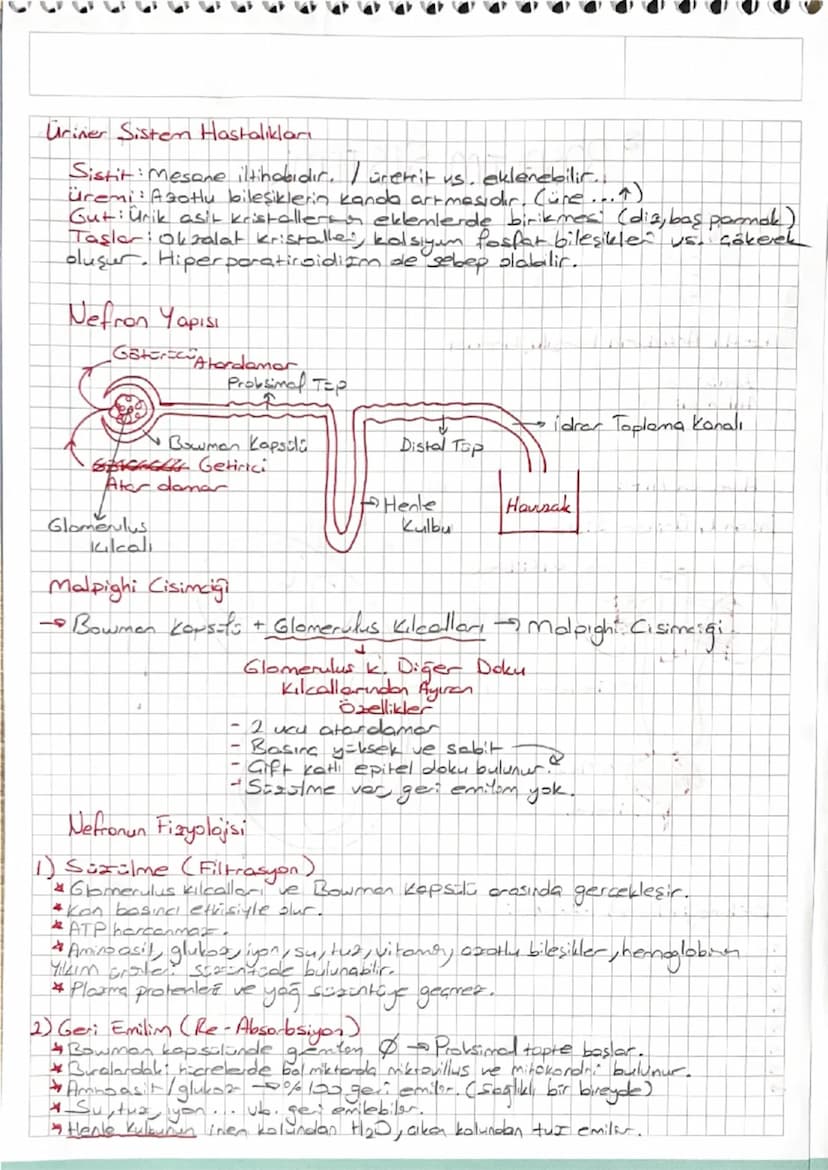 Üriner Sistem Hastalıkları
Sistit: Mesane iltihabıdır. / üretrit vs. eklenebilir.
Üremi: Azotlu bileşiklerin kanda artmasıdır. (üre ...↑)
Gut: Ürik asit kristallerinin eklemlerde birikmesi (diz, baş parmak)
Taşlar: Okzalat kristalleri, kalsiyum fosfat bileşikleri vs. çökerek
oluşur. Hiperparatiroidizm de sebep olabilir.
Nefron Yapısı
Götürücü Atardamar
Proksimal Tüp
İdrar Toplama Kanalı
Bowman Kapsülü
Distal Tüp
Getirici
Atar damar
Henle
Kulbu
Havuzak
Glomerulus
Kılcalı
Malpighi Cisimciği
→ Bowman Kapsülü + Glomerulus Kılcalları → Malpighi Cisimciği
Glomerulus K. Diğer Doku
Kılcallarından Ayıran
Özellikler
- 2 ucu atardamar
- Basınç yüksek ve sabit
- Çift katlı epitel doku bulunur.
- Süzülme var, geri emilim yok.
Nefronun Fizyolojisi
1) Süzülme (Filtrasyon)
* Glomerulus kılcalları ve Bowman kapsülü arasında gerçekleşir.
* Kan basıncı etkisiyle olur.
* ATP harcanmaz.
* Aminoasit, glukoz, iyon, su, tuz, vitamin, azotlu bileşikler, hemoglobinin
yıkım ürünleri süzüntüde bulunabilir.
* Plazma proteinleri ve yağ süzüntüye geçmez.
2) Geri Emilim (Re-Absorbsiyon)
* Bowman kapsülünde Ø → Proksimal tüpte başlar.
* Buralardaki hücrelerde bol miktarda mikrovillus ve mitokondri bulunur.
* Aminoasit/glukoz → %100 geri emilir. (Sağlıklı bir bireyde)
* Su, tuz, iyon ... vb. geri emilebilir.
* Henle Kulbunun inen kolundan H₂O, çıkan kolundan tuz emilir.